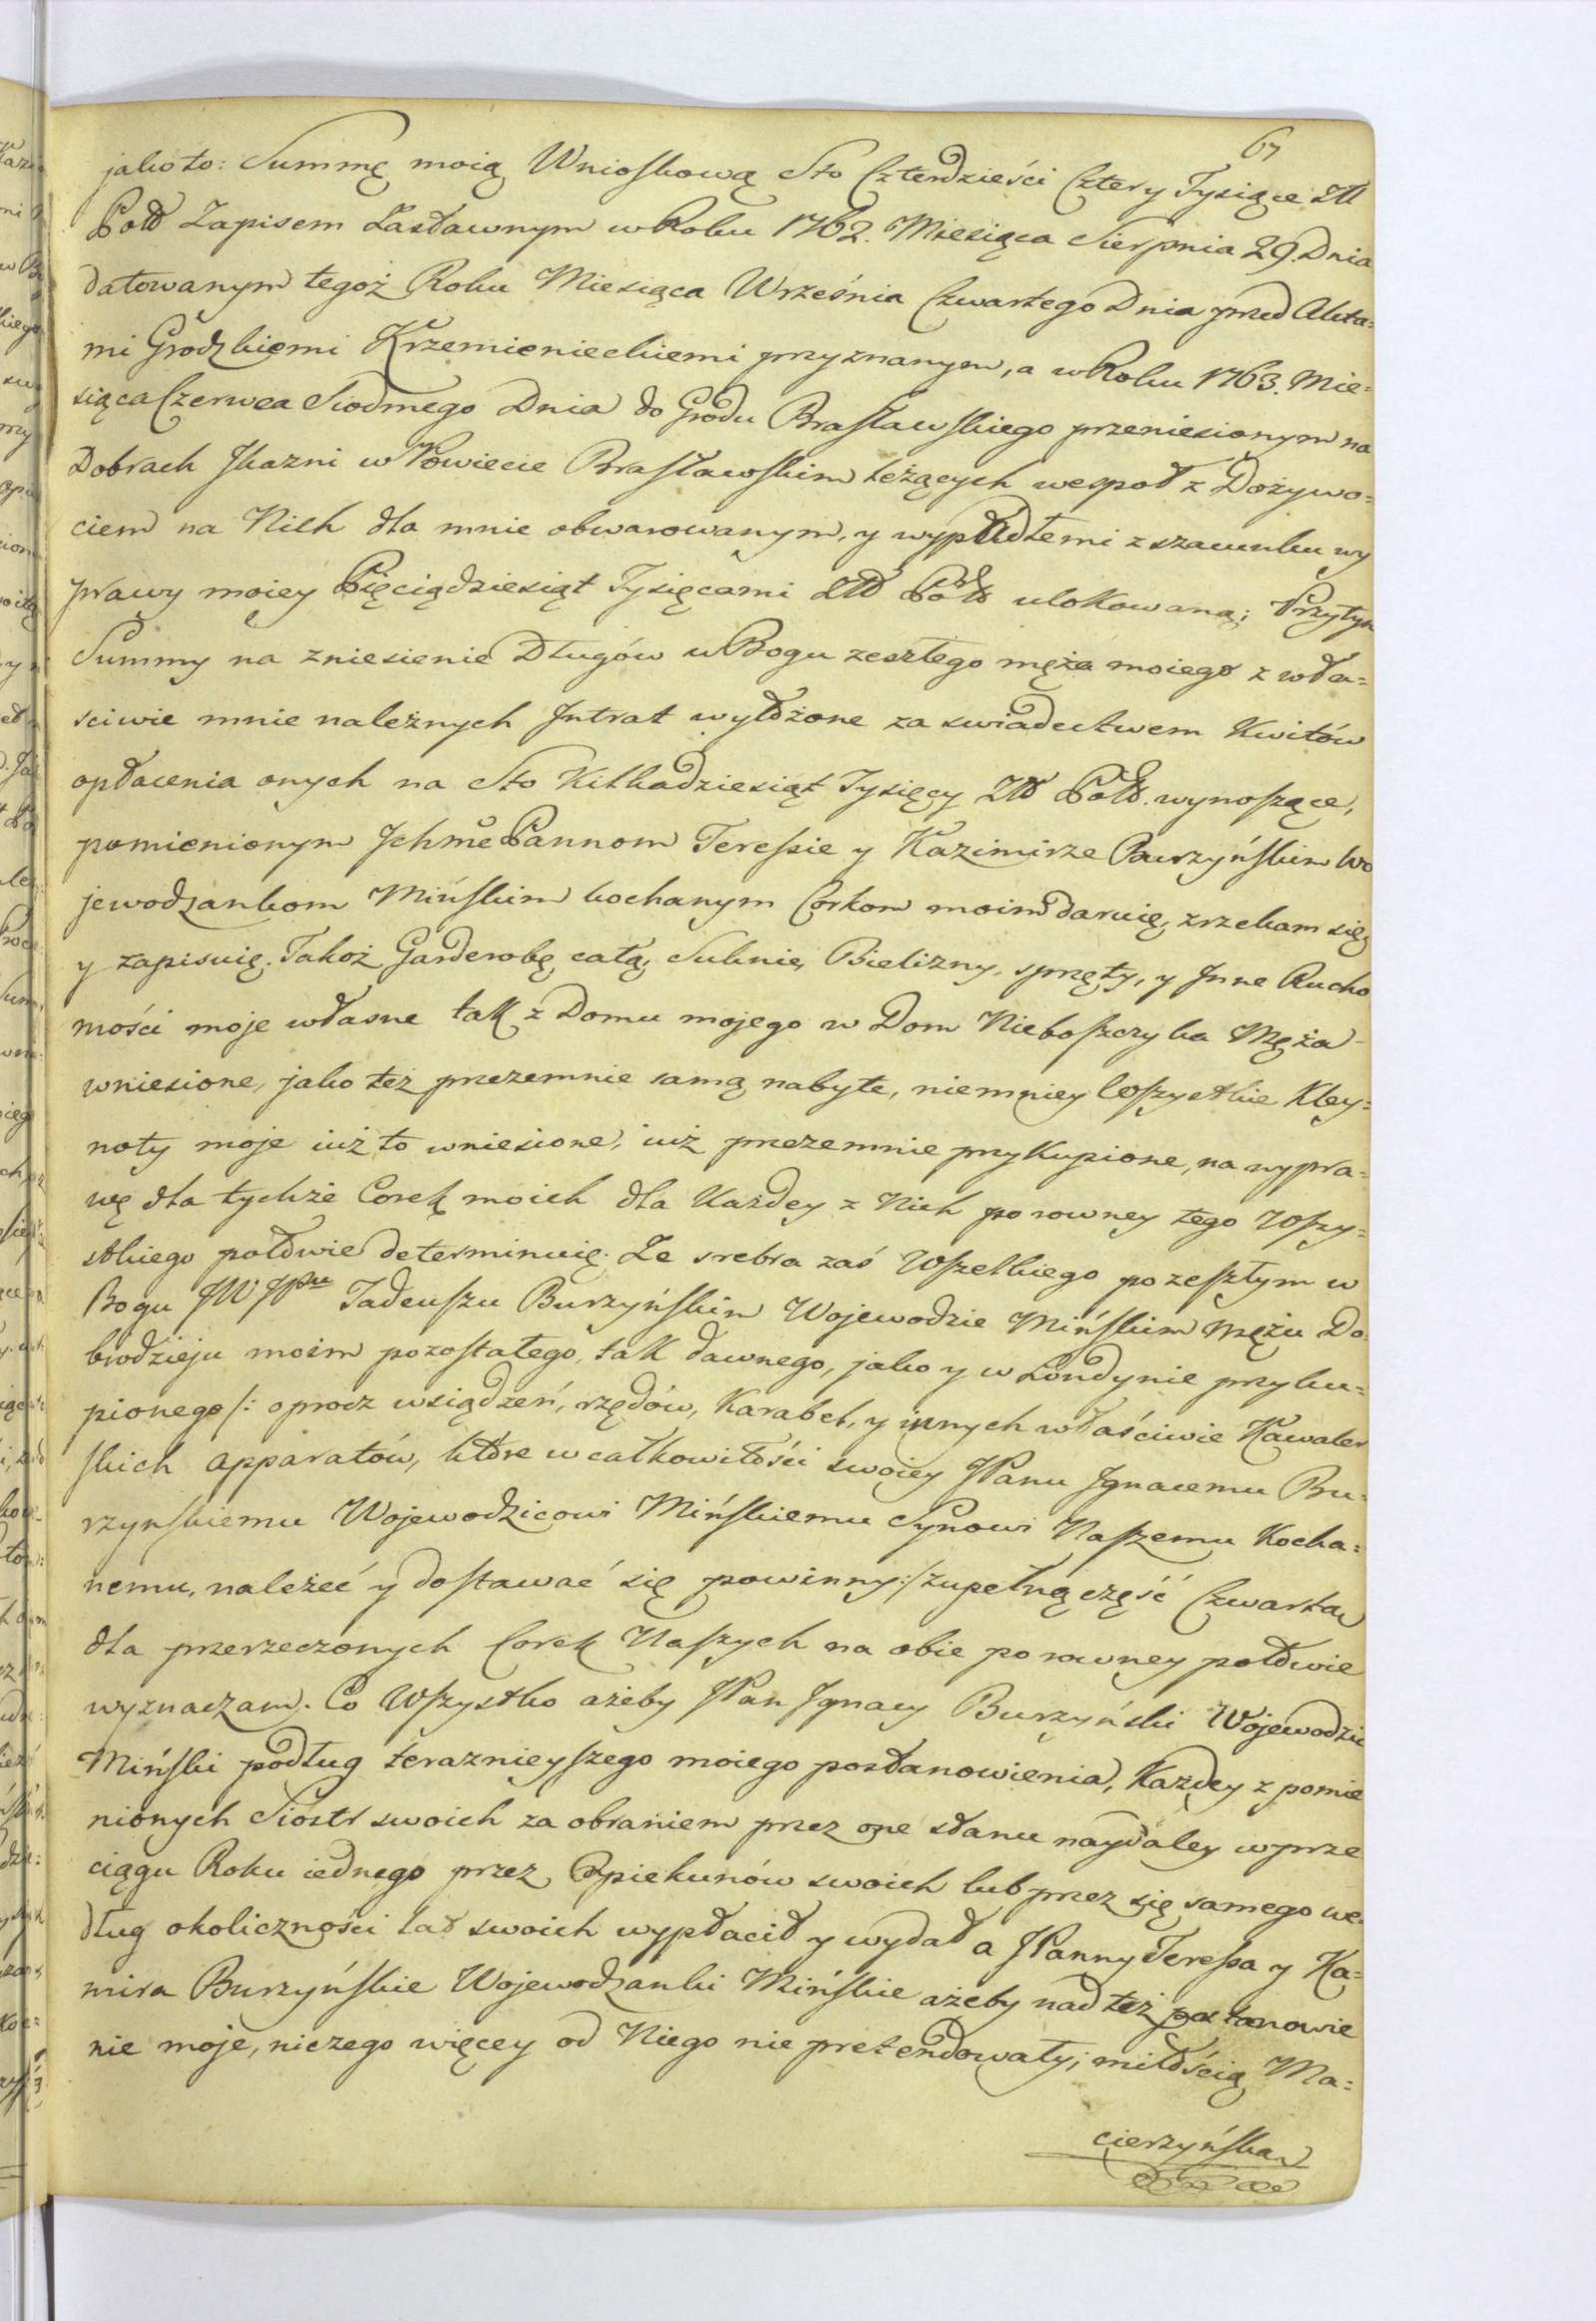 67
jako to: Summę moią Wnioskową Sto Czterdzieści Cztery Tysiące Złł
Poll Zapisem Zastawnym w Roku 1762. Miesiąca Sierpnia 29. Dnia
datowanym tegoż Roku Miesiąca Września Czwartego Dnia przed Akta=
mi Grodzkiemi Krzemienieckiemi przyznanym, a w Roku 1763. Mie=
siąca Czerwca Siodmego Dnia do Grodu Brasławskiego przeniesionym na
Dobrach Ikazni w Powiecie Brasławskim leżących wespoł z Dożywo=
ciem na Nich dla mnie obwarowanym, y wypadłemi z szacunku wy
prawy moiey Pięciądziesiąt Tysięcami Złł Poll ulokowaną; Przytym
Summy na zniesienie Długów w Bogu zeszłego męża moiego z wła=
sciwie mnie należnych Intrat wyłożone za swiadectwem Kwitów
opłacenia onych na Sto Kilkadziesiąt Tysięcy Złł Poll. wynoszące,
pomienionym Ichmć Pannom Teressie y Kazimirze Burzyńskim Wo
jewodzankom Mińskim kochanym Corkom moim daruię, zrzekam się,
y zapisuię. Takoż Garderobę całą, Suknie, Bielizny, sprzęty, y Inne Rucho
mości moje własne tak z Domu mojego w Dom Nieboszczyka Męża
wniesione, jako też przezemnie samą nabyte, niemniey Wszystkie Kley=
noty moje iuż to wniesione, iuż przezemnie przykupione, na wypra=
wę dla tychże Corek moich dla Każdey z Nich po rowney tego Wszy=
stkiego połowie determinuię. Ze srebra zaś Wszelkiego po zeszłym w
Bogu JW JPnu Tadeuszu Burzyńskim Wojewodzie Mińskim Mężu Do
brodzieju moim pozostałego, tak dawnego, jako y w Londynie przyku=
pionego /: oprocz wsiądzeń, rzędów, Karabel, y innych właściwie Kawaler
skich apparatów, które w całkowitości swoiey JPanu Ignacemu Bu=
rzynskiemu Wojewodzicowi Mińskiemu Synowi Naszemu Kocha=
nemu, należeć y dostawać się powinny :/ zupełną część Czwartą
dla przerzeczonych Corek Naszych na obie po rowney połowie
wyznaczam. Co Wszystko ażeby JPan Ignacy Burzyński Wojewodzic
Miński podług teraznieyszego moiego postanowienia, Każdey z pomie
nionych Siostr swoich za obraniem przez one stanu naydaley w prze
ciągu Roku iednego przez Opiekunów swoich lub przez się samego we=
dług okoliczności lat swoich wypłacił y wydał a JPanny Teressa y Ka=
mira Burzyńskie Wojewodzanki Mińskie ażeby nad też postanowie
nie moje, niczego więcey od Niego nie pretendowały; miłością Ma=
cierzyńską